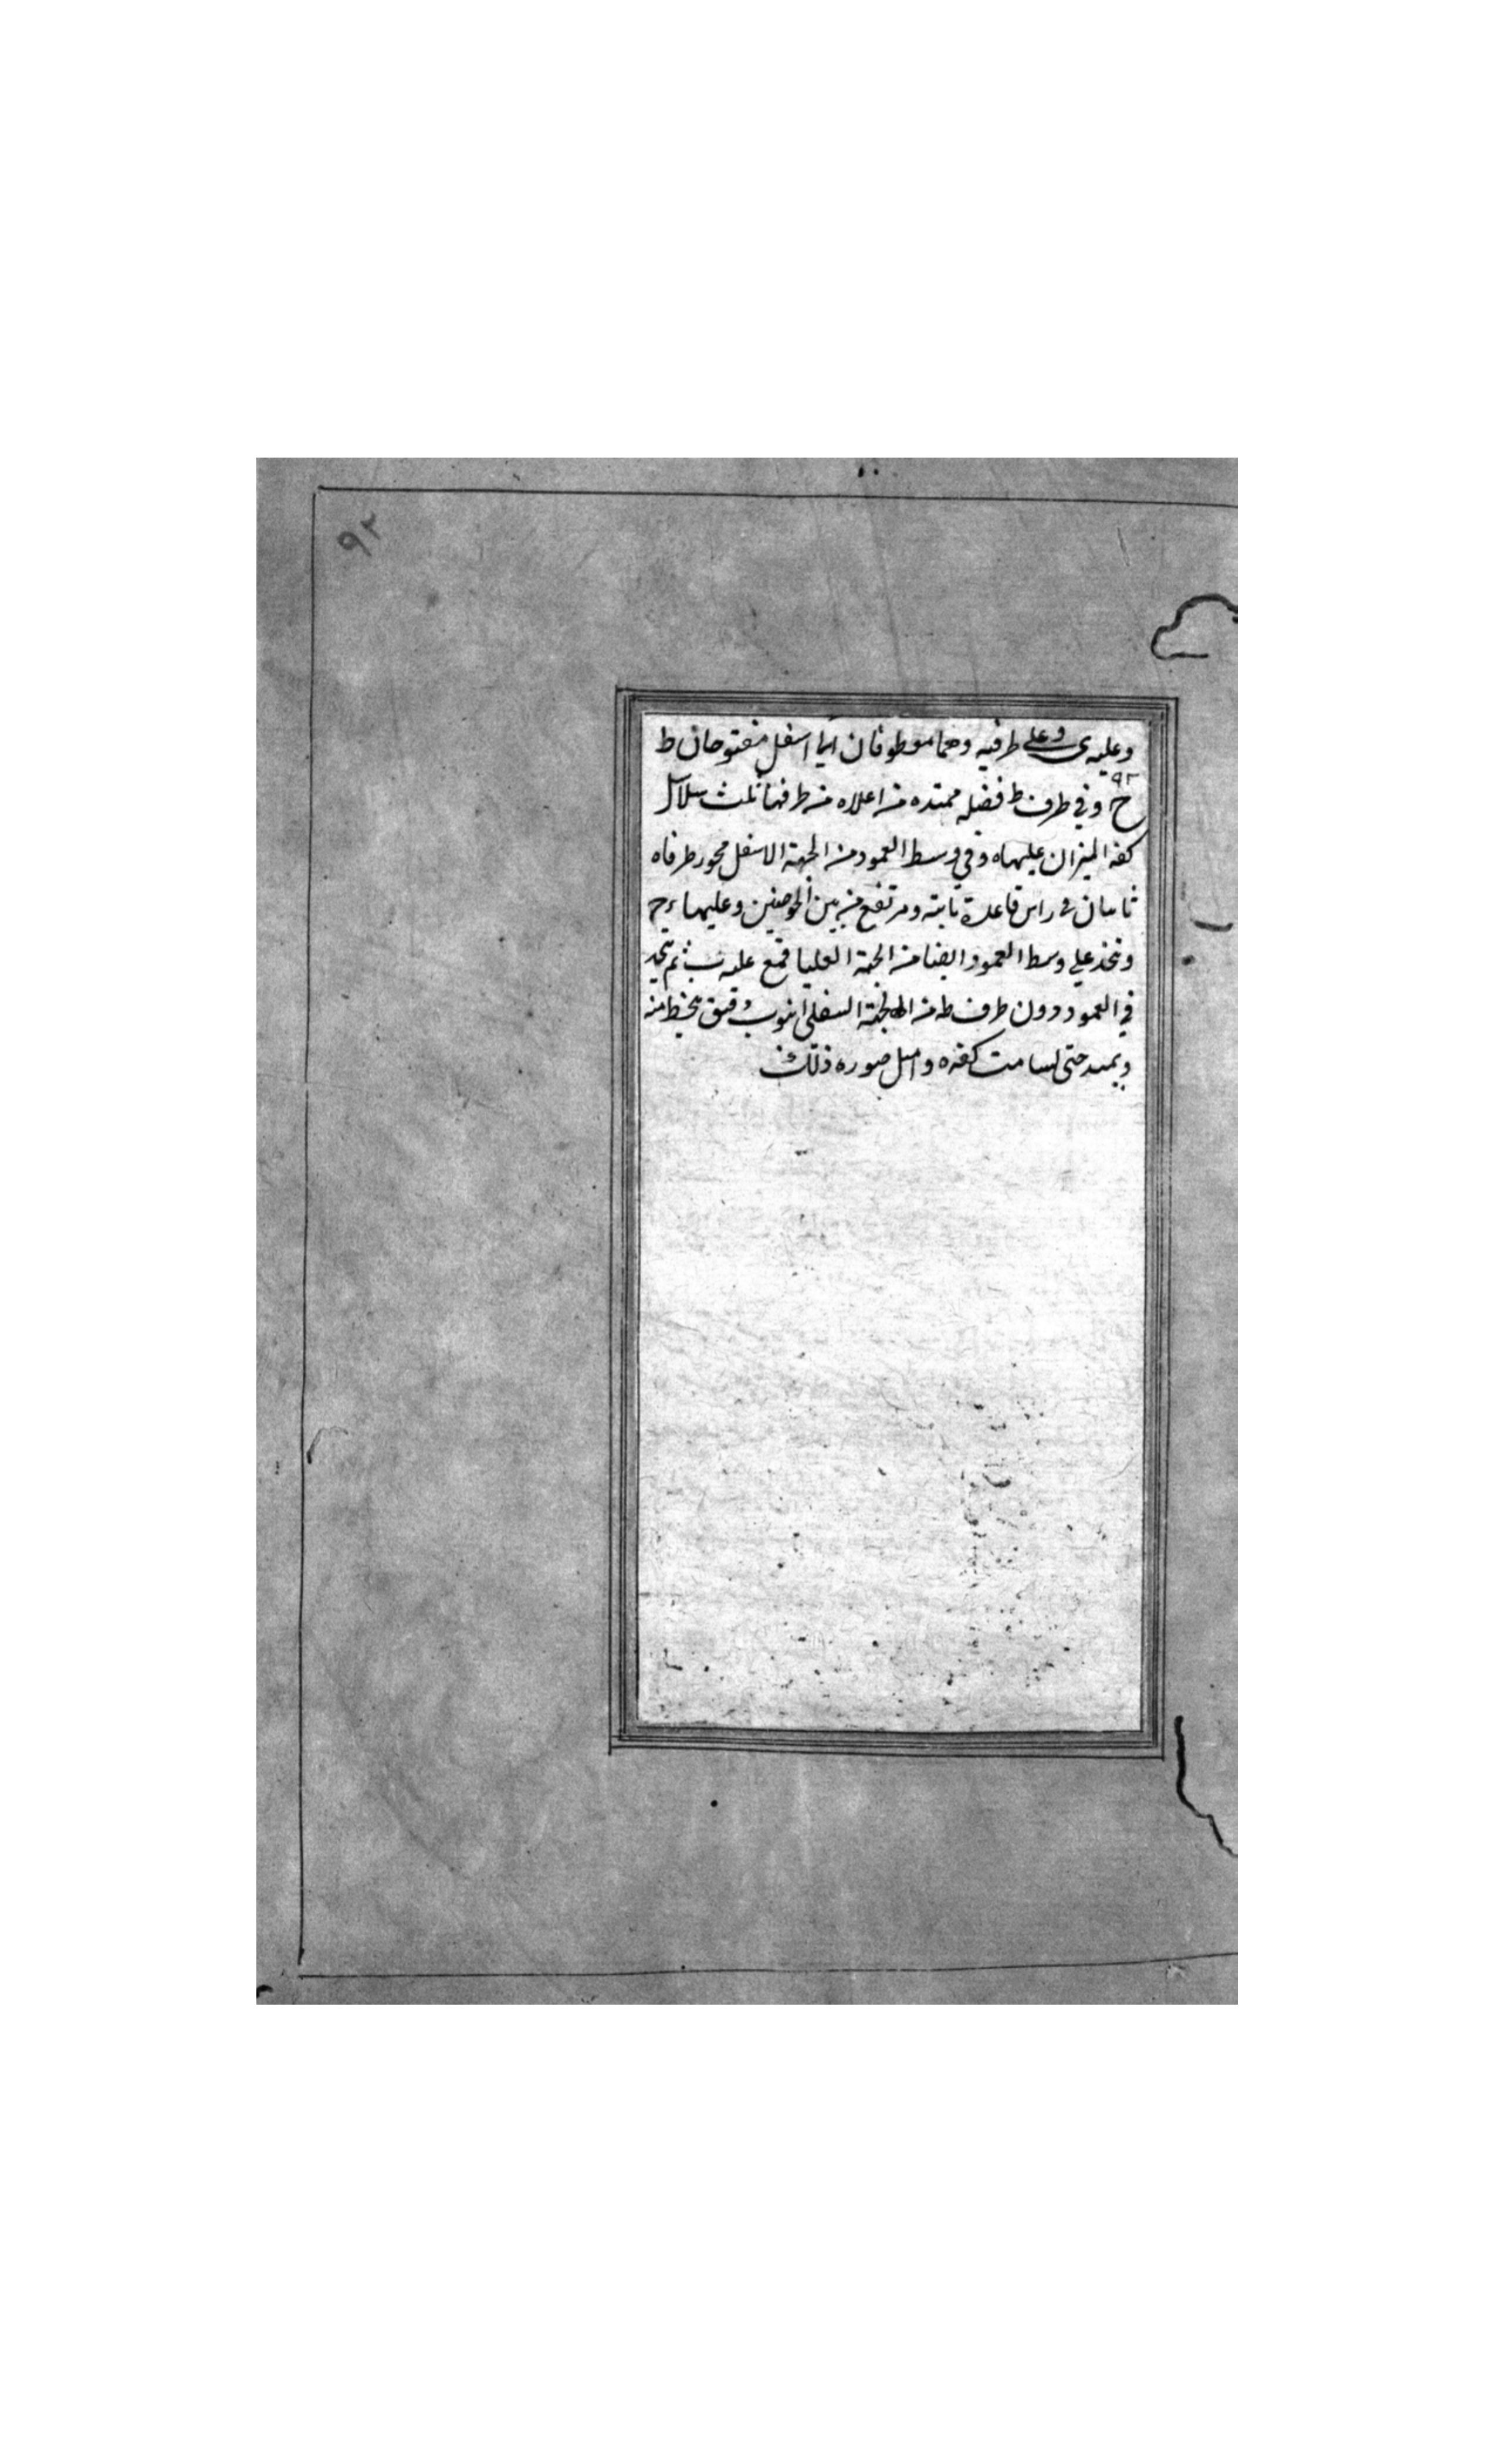 ٩٢
وعليه ى وعلى طرفيه وهما معطوفان الى اسفل مفتوحان ط
٩٢
ح وفي طرف ط فضله ممتده من اعلاه من طرفها ثلث سلاسل
كفه الميزان عليها ه وفي وسط العمود من الجهة الاسفل محور طرفاه
ثابتان فى راس قاعدة ثابتة ومرتفع من بين الحوضين وعليها
ونتخذ على وسط العمود ايضا من الجهة العليا قمع عليه ب ثم نتخذ
في العمود دون طرف ط من الجهة السفلى انبوب دقيق منه
ويمد حتى يسامت كفه ه وامثل صوره ذلك